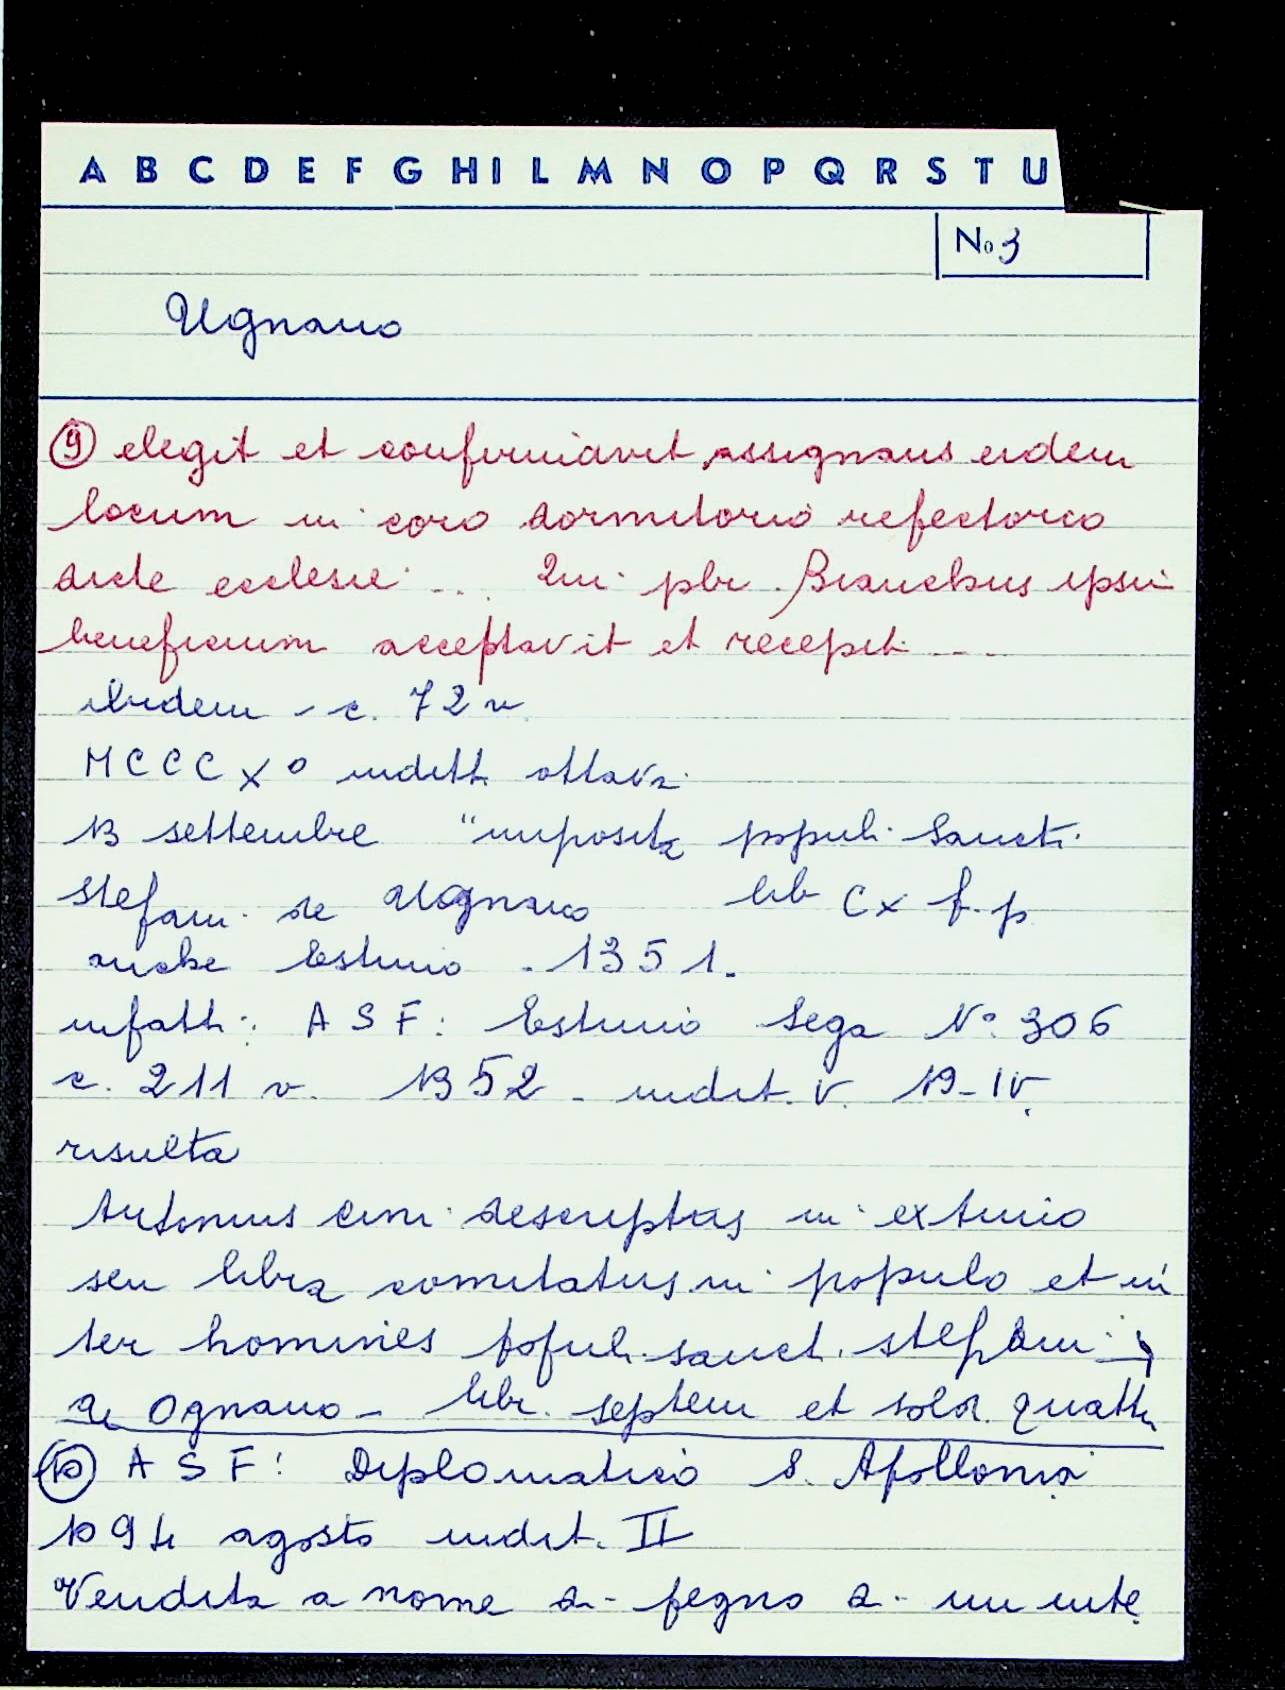 A B C D E F G H I L M N O P Q R S T U
No 3
Ugnano
9 elegit et confirmavit, assignans eidem
locum in coro dormitorio refectorio
dicte ecclesie ... Qui pbr. Bianchus ipsu
beneficium acceptavit et recepit ...
ibidem - c. 72 v
MCCCXº inditt. ottava
13 settembre "imposita populi Sancti
Stefani de Ugnano lib CX f. p.
anche Estimo - 1351.
infatti: ASF: Estimo Sega Nº 306
c. 211 v. 1352 - indit. V. 19-IV.
risulta
Antonius descriptus in extimo
seu libra comitatus in populo et in
ter homines populi sancti Stephani
de Ognano - libr. septem et sold. quattu
10 ASF: Diplomatico S. Apollonia
1094 agosto indit. II
Vendita a nome di pegno di un inte